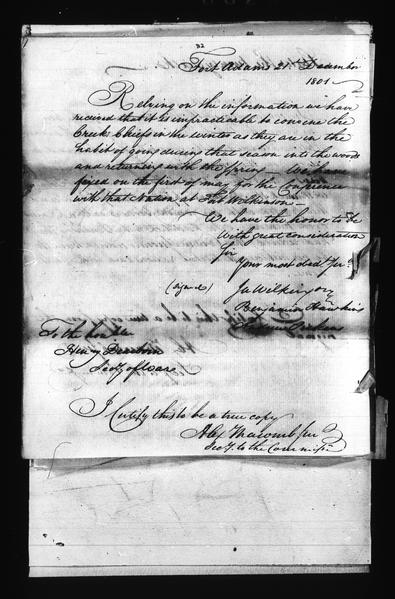 32
Fort Adams 21st December
1801
Relying on the information we have
received that it is impracticable to convene the
Creek Chiefs in the winter as they are in the
habit of going during that season into the woods
and returning with the Spring We have
fixed on the first of may for the Conference
with that Nation at Fort Wilkinson
We have the honor to be
With great consideration
Sir
Your most obed Ser
(signed) Ja Wilkinson
Benjamin Hawkins
Andrew Pickens
To the honble
Henry Dearborn
Secy of War
I Certify this to be a true copy
Alex Macomb Jun
Secy to the Commiss